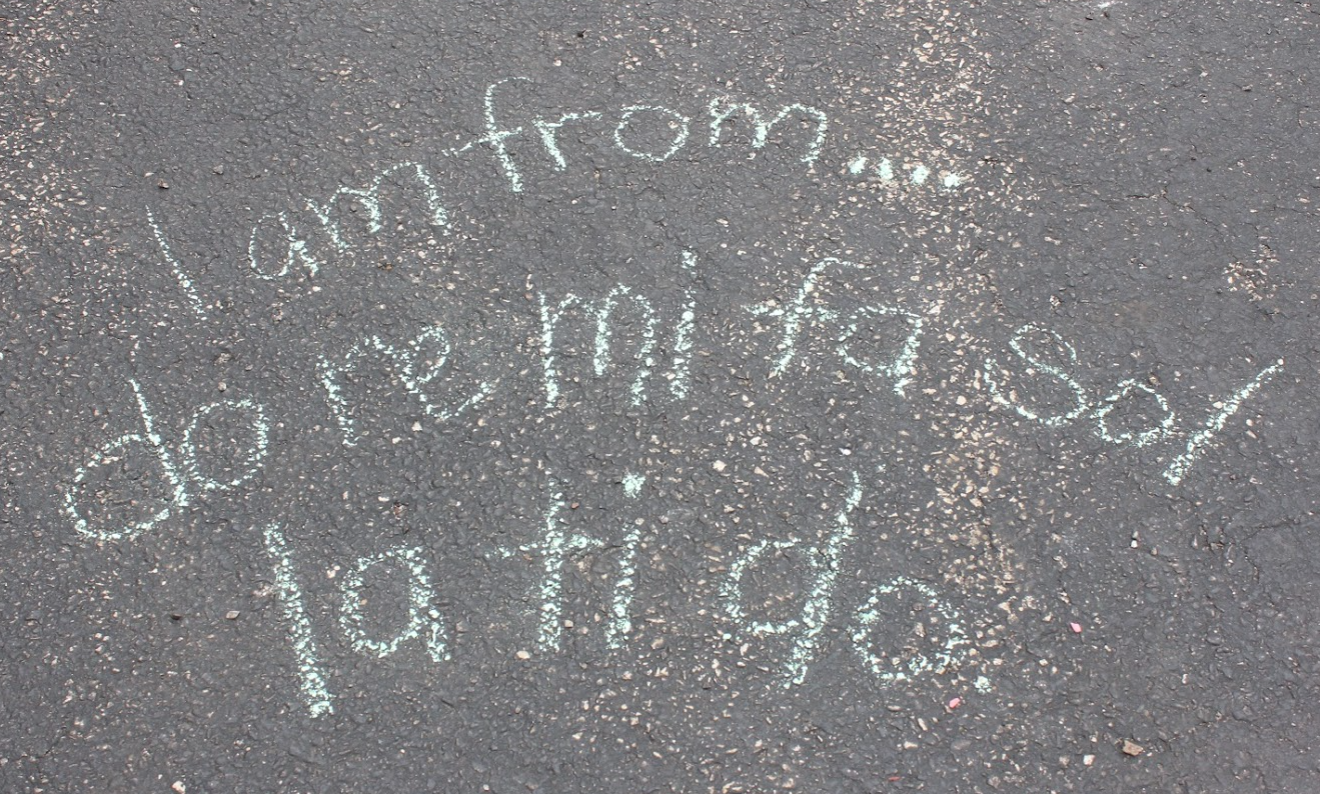 I am from....
do re mi fa Sol
la ti do.